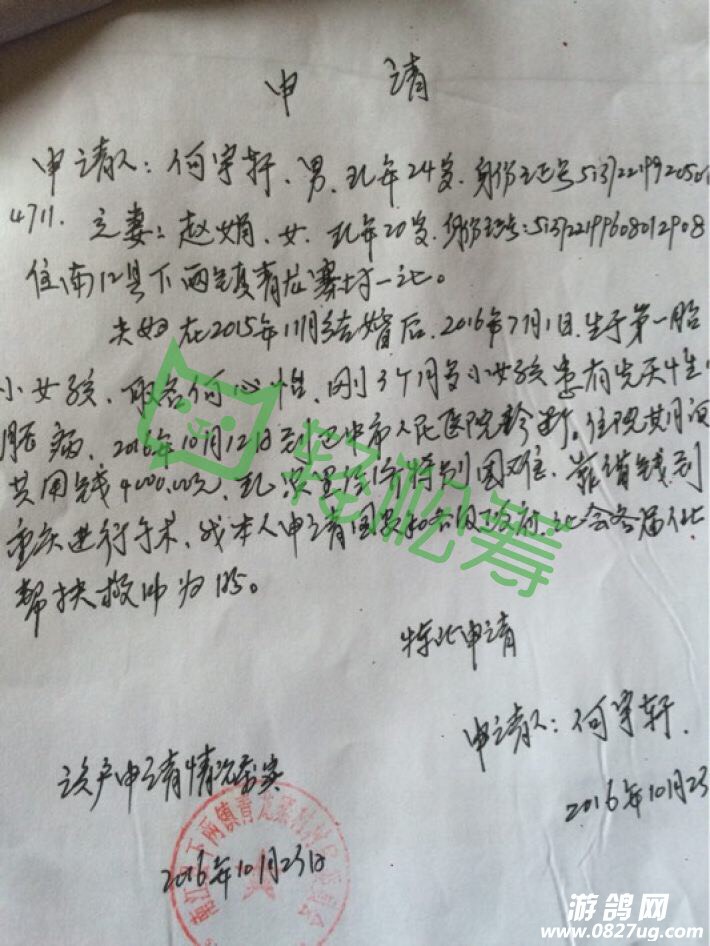 申 请
申请人：何宇轩、男、现年24岁、身份证号51372219920501
4711. 之妻：赵娟、女、现年20岁、身份证号:513722199608012908
住南江县下两镇青龙寨村一社。
夫妇在2015年11月结婚后、2016年7月1日、生于第一胎
小女孩、取名何心怡、刚3个月多小女孩患有先天性
胆病、2016年10月12日到巴中市人民医院诊断，住院其间
共用钱4000.00元、现家里经济特别困难、靠借钱到
重庆进行手术、我本人申请国家和各级政府、社会各届人士
帮扶救助为盼。
特此申请
申请人：何宇轩.
2016年10月23
该户申请情况属实
2016年10月23日
南江县下两镇青龙寨村村民委员会
轻松筹
游鸽网
www.0827ug.com